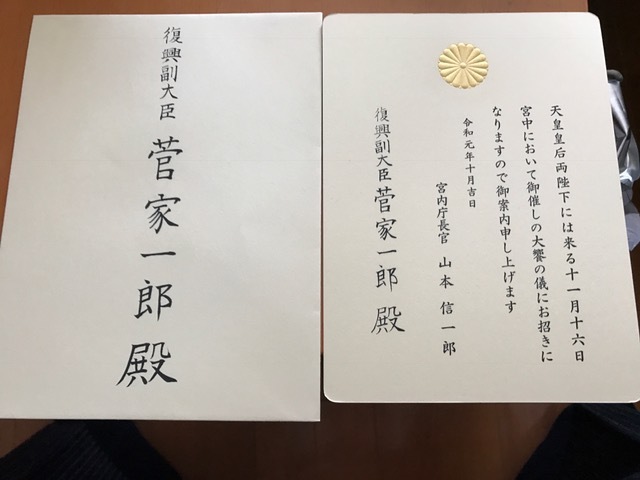 復興副大臣 菅家一郎 殿
天皇皇后両陛下には来る十一月十六日
宮中において御催しの大饗の儀にお招きに
なりますので御案内申し上げます
令和元年十月吉日
宮内庁長官 山本 信一郎
復興副大臣 菅家一郎 殿